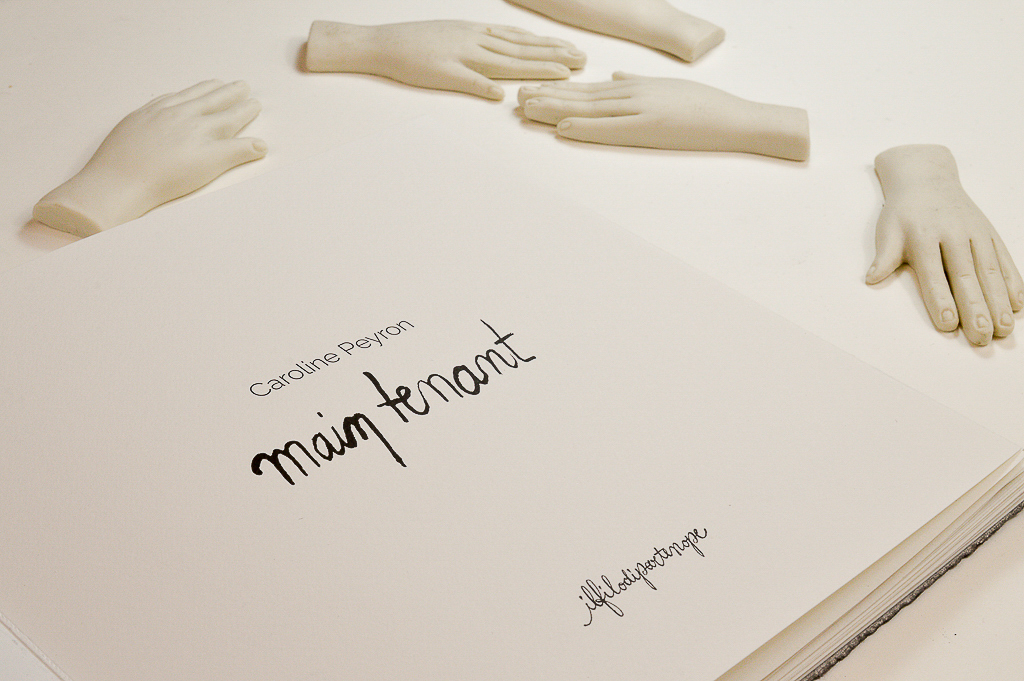 Caroline Peyron
main tenant
ilfilodipartenope